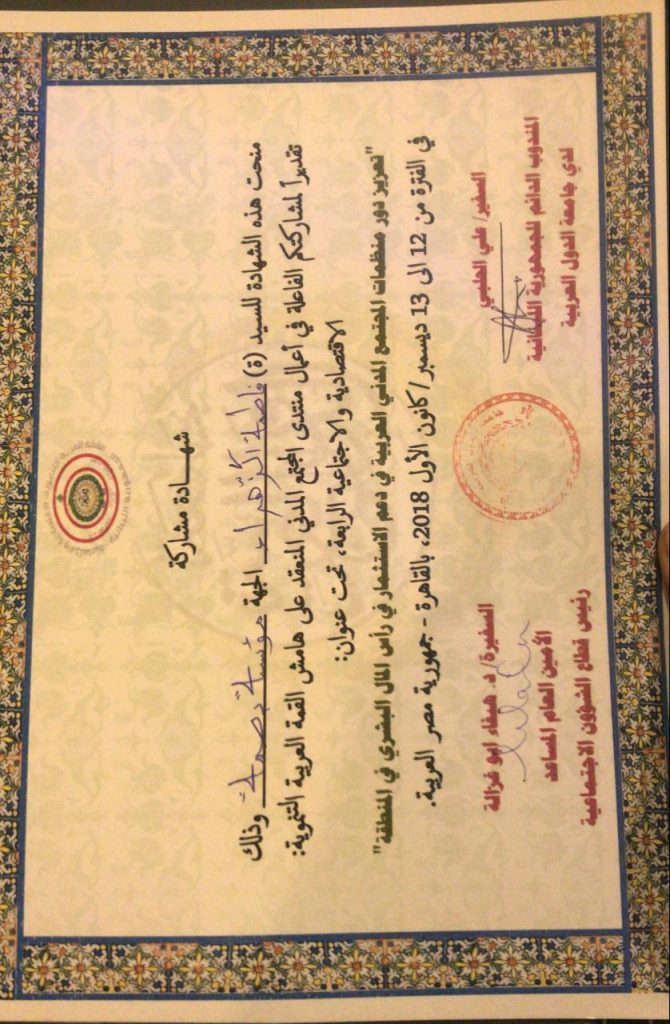 شهـــادة مشاركة
منحت هذه الشهادة للسيد (ة) فاطمة الزهراء الجهة مؤسسة بصمة وذلك
تقديراً لمشاركتكم الفاعلة في أعمال منتدى المجتمع المدني المنعقد على هامش القمة العربية التنموية:
الاقتصادية والاجتماعية الرابعة، تحت عنوان:
"تعزيز دور منظمات المجتمع المدني العربية في دعم الاستثمار في رأس المال البشري في المنطقة"
في الفترة من 12 الى 13 ديسمبر/كانون الأول 2018، بالقاهرة - جمهورية مصر العربية.
السفير/ علي الحلبي
المندوب الدائم للجمهورية اللبنانية
لدي جامعة الدول العربية
السفيرة/ د. هيفاء ابو غزالة
الأمين العام المساعد
رئيس قطاع الشؤون الاجتماعية